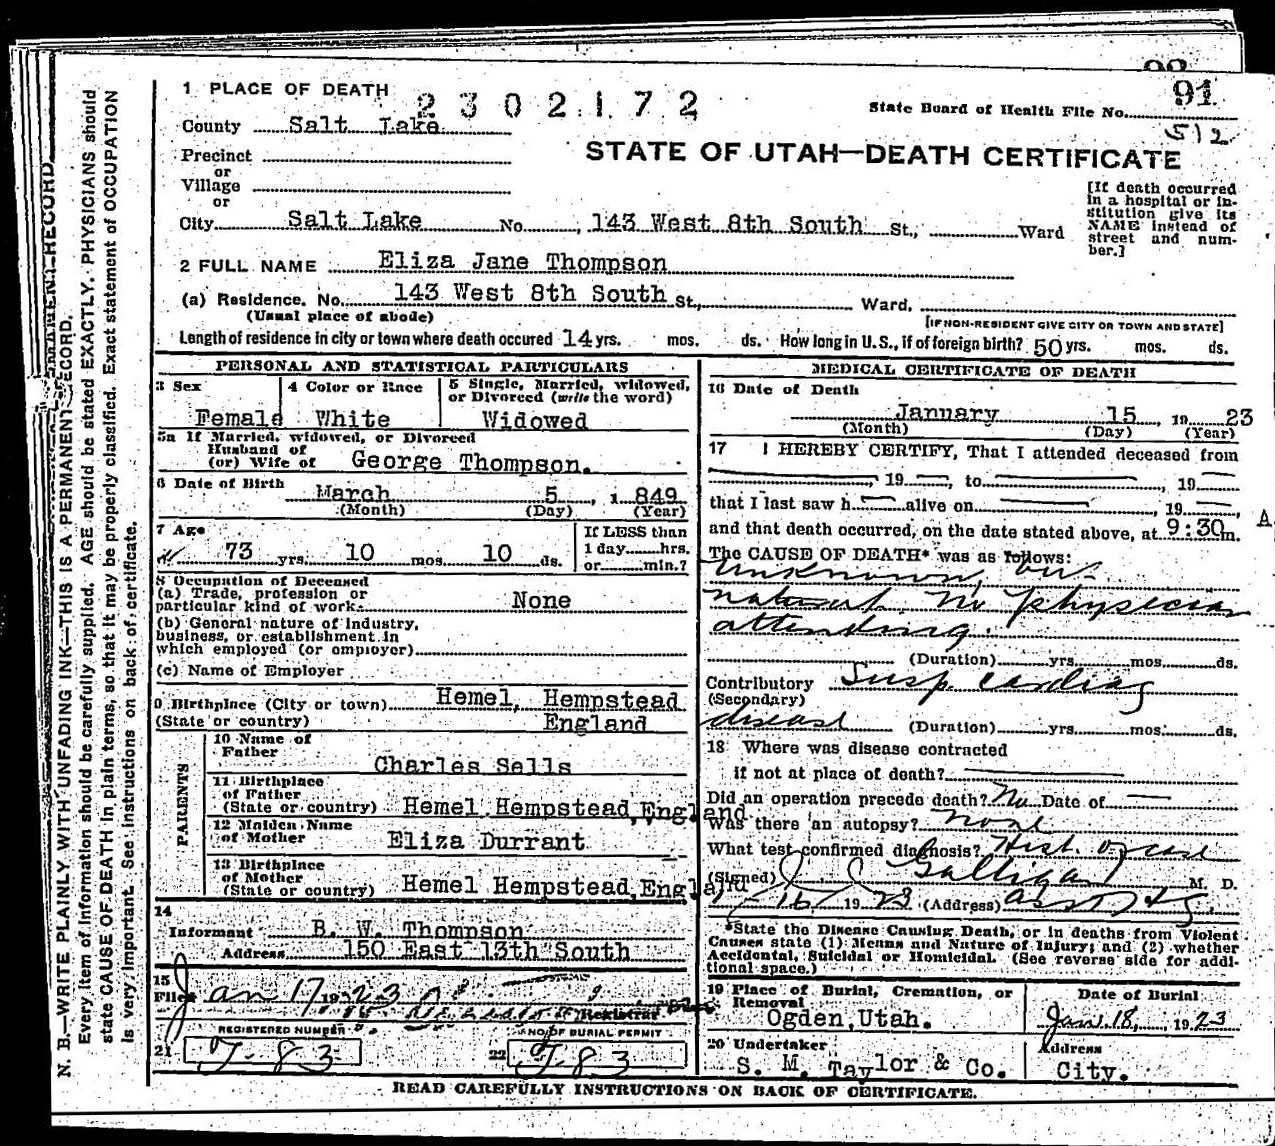 1 PLACE OF DEATH
2302172
State Board of Health File No. 91
512
County Salt Lake
STATE OF UTAH—DEATH CERTIFICATE
Precinct
or
Village
or
City Salt Lake No. 143 West 8th South St., Ward
[If death occurred in a hospital or institution give its NAME instead of street and number.]
2 FULL NAME Eliza Jane Thompson
(a) Residence. No. 143 West 8th South St., Ward.
(Usual place of abode) [IF NON-RESIDENT GIVE CITY OR TOWN AND STATE]
Length of residence in city or town where death occured 14 yrs. mos. ds. How long in U. S., if of foreign birth? 50 yrs. mos. ds.
PERSONAL AND STATISTICAL PARTICULARS
3 Sex 4 Color or Race 5 Single, Married, widowed, or Divorced (write the word)
Female White Widowed
5a If Married, widowed, or Divorced
Husband of
(or) Wife of George Thompson.
6 Date of Birth March 5, 1849
(Month) (Day) (Year)
7 Age 73 yrs. 10 mos. 10 ds.
If LESS than
1 day......hrs.
or......min.?
8 Occupation of Deceased
(a) Trade, profession or
particular kind of work. None
(b) General nature of Industry,
business, or establishment in
which employed (or employer)
(c) Name of Employer
9 Birthplace (City or town) Hemel, Hempstead
(State or country) England
PARENTS
10 Name of
Father Charles Sells
11 Birthplace
of Father
(State or country) Hemel Hempstead, England
12 Maiden Name
of Mother Eliza Durrant
13 Birthplace
of Mother
(State or country) Hemel Hempstead, England
14
Informant B. W. Thompson
Address 150 East 13th South
15
Filed Jan 17 1923
Registrar
REGISTERED NUMBER
21 J-83
NO. OF BURIAL PERMIT
22 J83
MEDICAL CERTIFICATE OF DEATH
16 Date of Death
January 15, 1923
(Month) (Day) (Year)
17 I HEREBY CERTIFY, That I attended deceased from
, 19 , to , 19
that I last saw h alive on , 19
and that death occurred, on the date stated above, at 9:30 A m.
The CAUSE OF DEATH* was as follows:
Unknown, but
natural. No physician
attending.
(Duration) yrs. mos. ds.
Contributory Susp cardiac
(Secondary)
disease (Duration) yrs. mos. ds.
18 Where was disease contracted
if not at place of death?
Did an operation precede death? No Date of
Was there an autopsy? None
What test confirmed diagnosis? Hist. of case
(Signed) Galligan M. D.
1/16/1923 (Address)
*State the Disease Causing Death, or in deaths from Violent
Causes state (1) Means and Nature of Injury; and (2) whether
Accidental, Suicidal or Homicidal. (See reverse side for addi-
tional space.)
19 Place of Burial, Cremation, or
Removal Date of Burial
Ogden, Utah. Jan. 18, 1923
20 Undertaker Address
S. M. Taylor & Co. City.
READ CAREFULLY INSTRUCTIONS ON BACK OF CERTIFICATE.
N. B.—WRITE PLAINLY WITH UNFADING INK—THIS IS A PERMANENT RECORD.
Every item of information should be carefully supplied. AGE should be stated EXACTLY. PHYSICIANS should
state CAUSE OF DEATH in plain terms, so that it may be properly classified. Exact statement of OCCUPATION
is very important. See instructions on back of certificate.